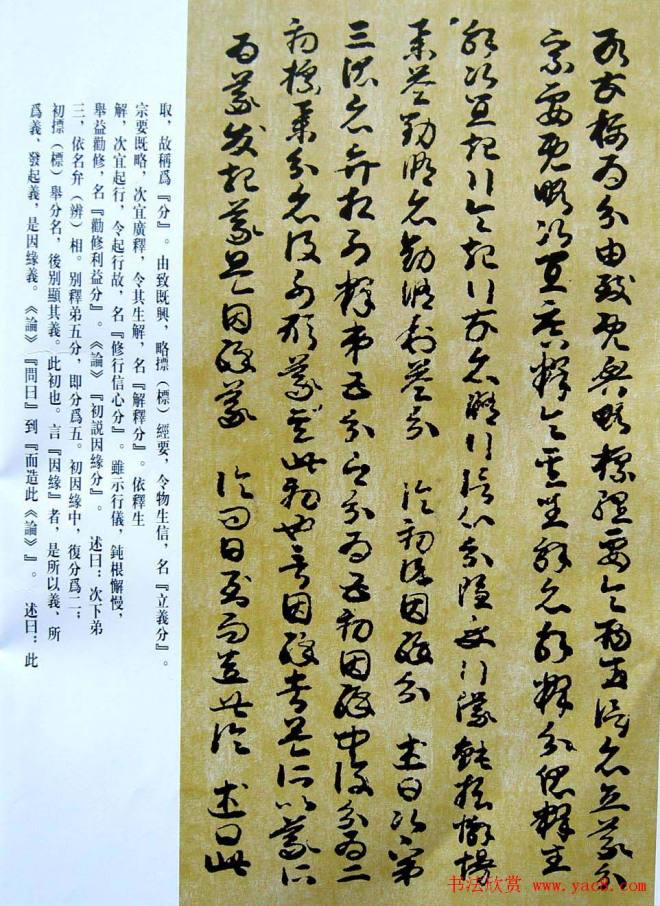 取故稱為分由致既興略摽經要令物生信名立義分
宗要既略次宜廣釋令其生解名解釋分依釋生
解次宜起行令起行故名修行信心分雖示行儀鈍根懈慢
舉益勸修名勸修利益分 論初說因緣分 述曰次下弟
三依名弁相別釋弟五分即分為五初因緣中復分為二
初摽舉分名後別顯其義此初也言因緣者是所以義所
為義發起義是因緣義 論問曰到而造此論 述曰此
取，故稱爲『分』。由致既興，略摽（標）經要，令物生信，名『立義分』。
宗要既略，次宜廣釋，令其生解，名『解釋分』。依釋生
解，次宜起行，令起行故，名『修行信心分』。雖示行儀，鈍根懈慢，
舉益勸修，名『勸修利益分』。《論》『初説因緣分』。 述曰：次下弟
三，依名弁（辨）相。別釋弟五分，即分爲五。初因緣中，復分爲二：
初摽（標）舉分名，後別顯其義。此初也。言『因緣』者，是所以義、所
爲義、發起義，是因緣義。《論》『問曰』到『而造此《論》』。 述曰：此
书法欣赏 www.yac8.com